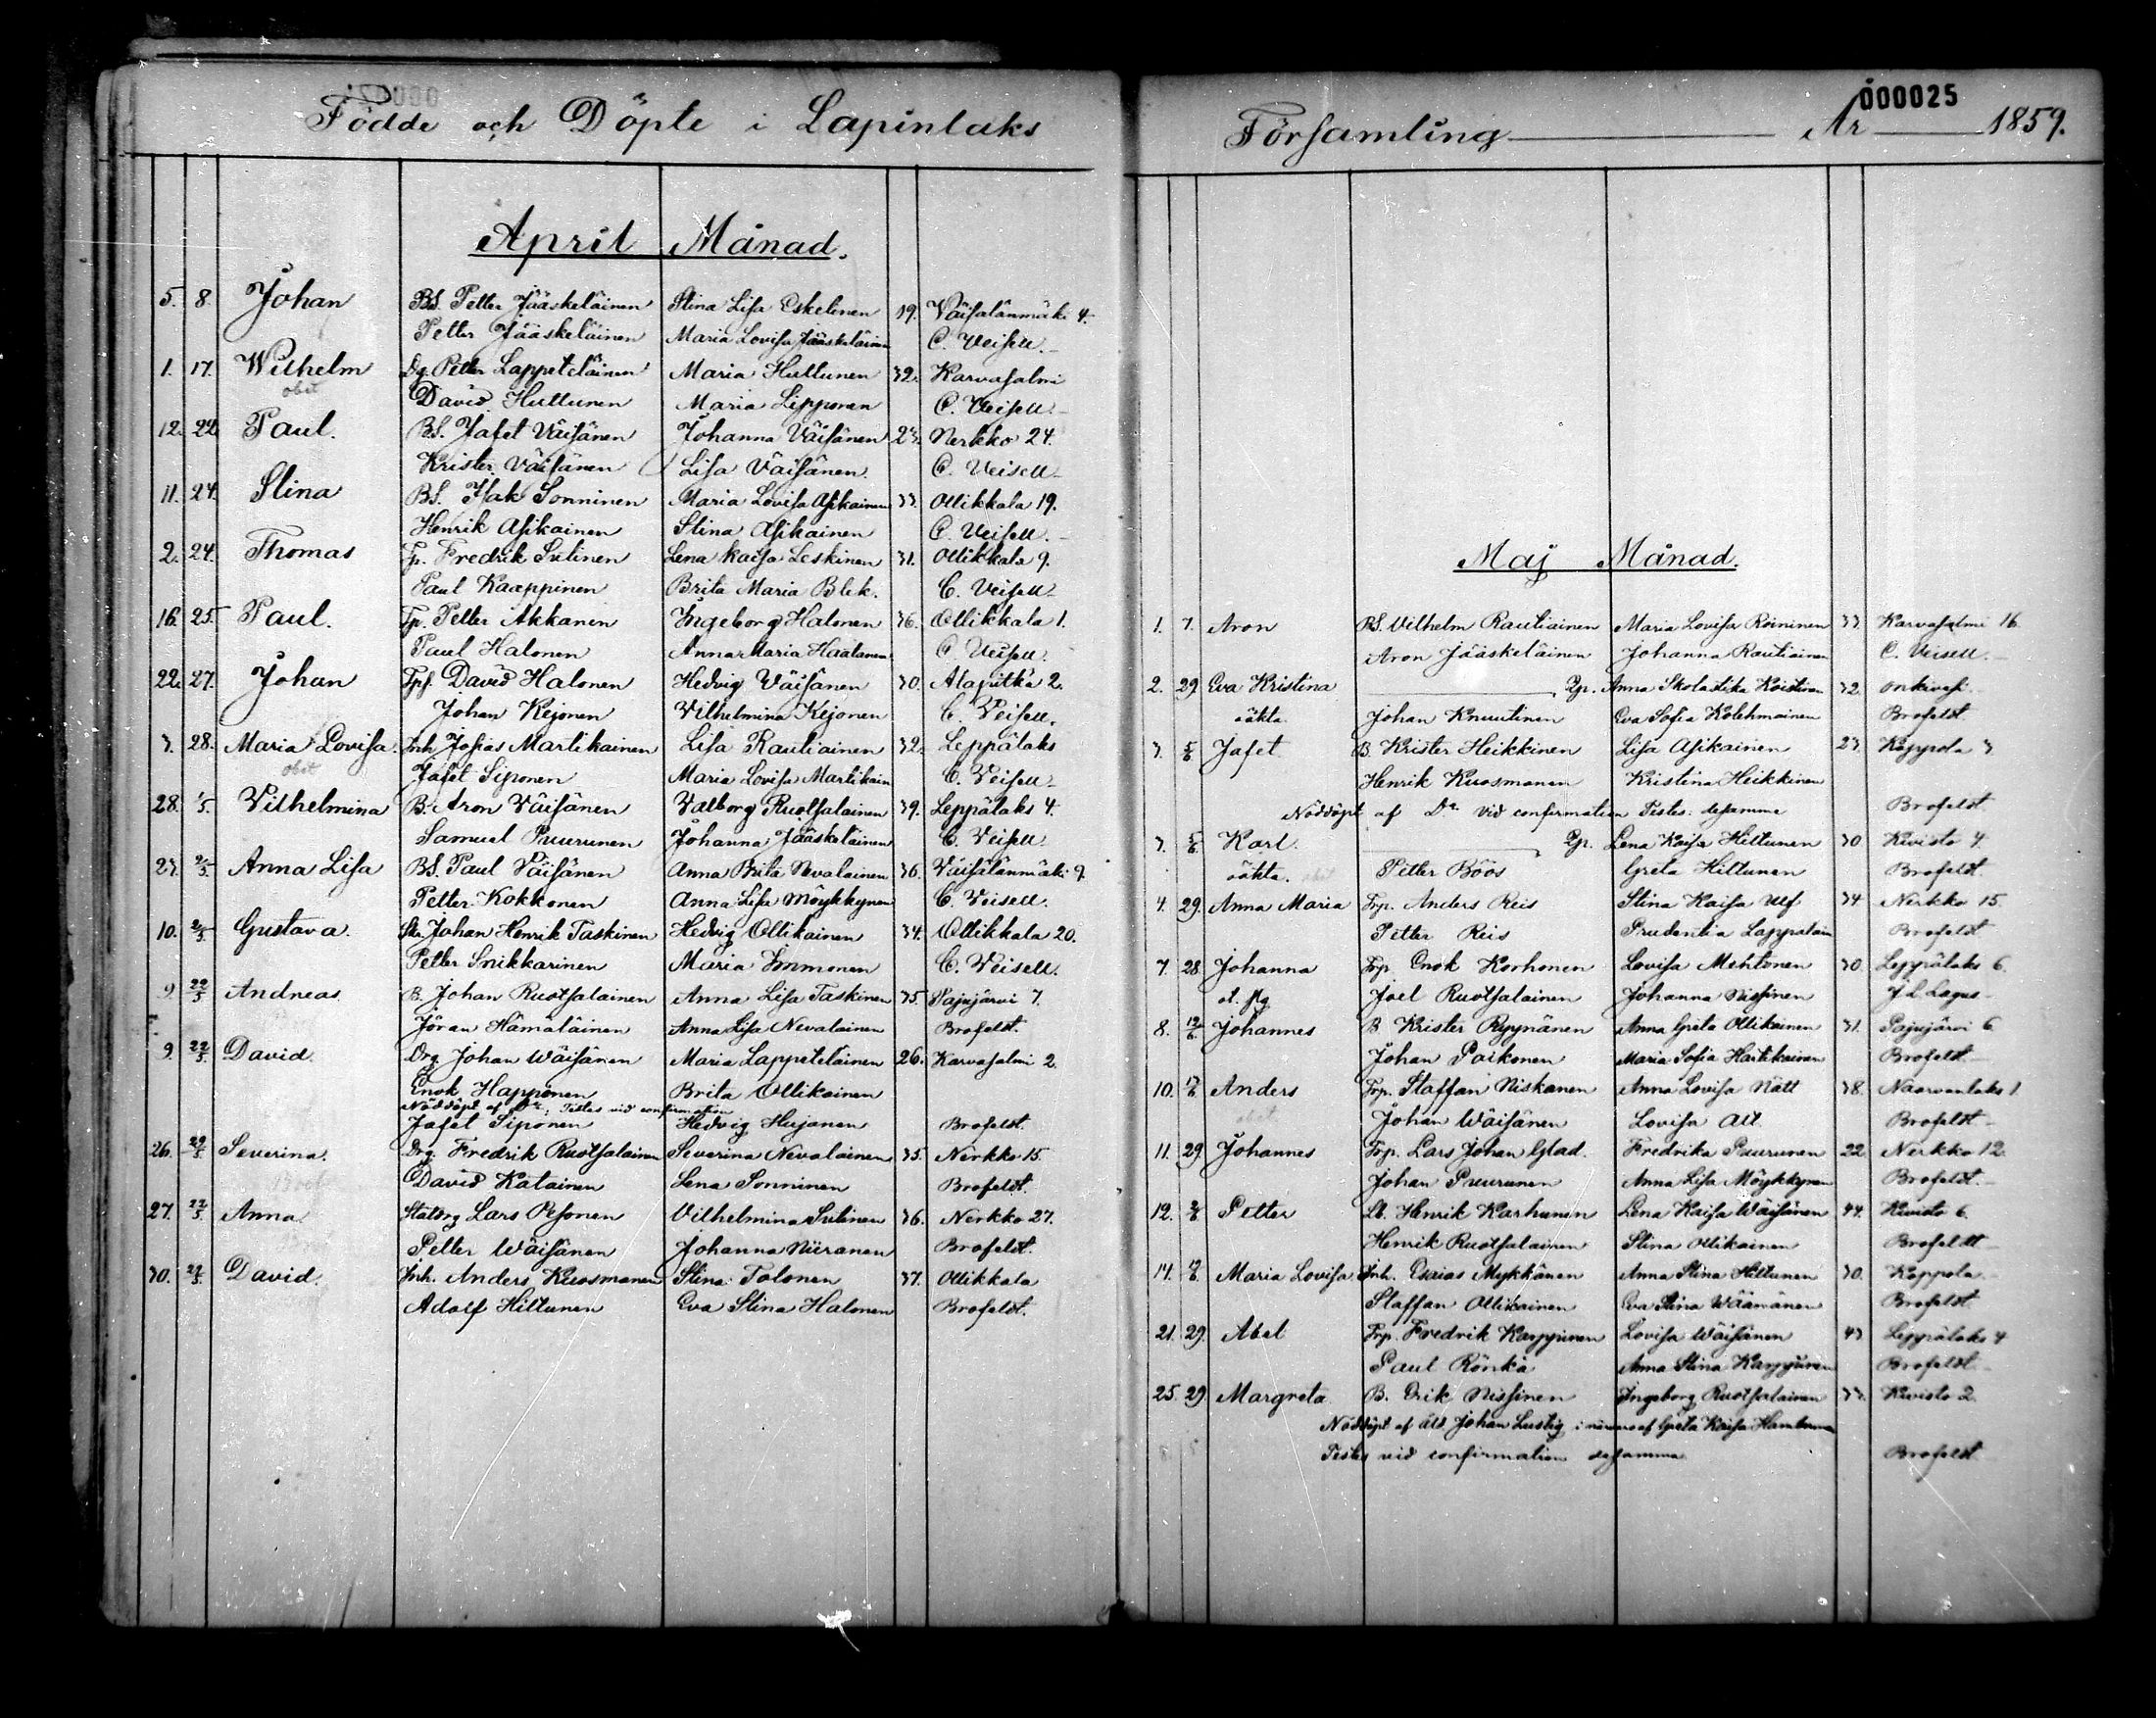 Födde och Döpte i Lapinlaks
April Månad.
5. 8. Johan BS. Petter Jääskeläinen Stina Lisa Eskelinen 19. Väisälänmäki 4.
Petter Jääskeläinen Maria Lovisa Jääskeläinen C. Veisell.
1. 17. Wilhelm Dg. Petter Lappeteläinen Maria Huttunen 32. Karvasalmi
obiit David Huttunen Maria Lipponen C. Veisell.
12. 22. Paul. BS. Jafet Väisänen Johanna Väisänen 23. Nerkko 24.
Krister Väisänen Lisa Väisänen C. Veisell
11. 24. Stina BS. Isak Sonninen Maria Lovisa Asikainen 33. Ollikkala 19.
Henrik Asikainen Stina Asikainen C. Veisell.
2. 24. Thomas Tp. Fredrik Sutinen Lena Kaisa Leskinen 31. Ollikkala 9.
Paul Kaappinen Brita Maria Blek. C. Veisell
16. 25. Paul. Tp. Petter Akkanen Ingeborg Halonen 36. Ollikkala 1.
Paul Halonen Anna Maria Haatanen C. Veisell.
22. 27. Johan Tpf. David Halonen Hedvig Väisänen 30. Alapitkä 2.
Johan Kejonen Vilhelmina Kejonen C. Veisell.
3. 28. Maria Lovisa. Inh Josias Martikainen Lisa Rautiainen 32. Leppälaks
obiit Jafet Siponen Maria Lovisa Martikain C. Veisell
28. 1/5. Vilhelmina B. Aron Väisänen Valborg Ruotsalainen 39. Leppälaks 4.
Samuel Puurunen Johanna Jääskeläinen C. Veisell
23. 2/5. Anna Lisa BS. Paul Väisänen Anna Brita Nevalainen 36. Väisälänmäki 9.
Petter Kokkonen Anna Lisa Möykkynen C. Veisell.
10. 2/5. Gustava. Johan Henrik Taskinen Hedvig Ollikainen 34. Ollikkala 20.
Petter Snikkarinen Maria Immonen C. Veisell.
9. 22/5 Andreas B. Johan Ruotsalainen Anna Lisa Taskinen 35. Pajujärvi 7.
Jöran Hämäläinen Anna Lisa Nevalainen Brofeldt.
9. 22/5. David Drg Johan Wäisänen Maria Lappeteläinen 26. Karvasalmi 2.
Enok Happonen Brita Ollikainen
Nöddöpt af Dr, Testes vid confirmation
Jafet Siponen Hedvig Hujanen Brofeldt.
26. 29/5. Severina. Drg. Fredrik Ruotsalainen Severina Nevalainen 35. Nerkko 15.
David Katainen Lena Sonninen Brofeldt.
27. 22/5. Anna. Statdrg Lars Pesonen Vilhelmina Sutinen 36. Nerkko 27.
Petter Wäisänen Johanna Niiranen Brofeldt.
30. 22/5. David. Inh. Anders Kuosmanen Stina Tolonen 37. Ollikkala
Adolf Hiltunen Eva Stina Halonen Brofeldt.
000025
Församling År 1859.
Maj Månad.
1. 7. Aron BS. Vilhelm Rautiainen Maria Lovisa Roininen 33. Karvasalmi 16
Aron Jääskeläinen Johanna Rautiainen C. Veisell.
2. 29 Eva Kristina Pp. Anna Skolastika Koistinen 32. Onkivesi
oäkta. Johan Knuutinen Eva Sofia Kolehmainen Brofeldt.
3. 5/6 Jafet B. Krister Heikkinen Lisa Asikainen 23. Koppola 3
Henrik Kuosmanen Kristina Heikkinen
Nöddöpt af Dr vid confirmation Testes: desamma Brofeldt.
3. 5/6. Karl. Pp. Lena Kaisa Hiltunen 30 Kivisto 4.
oäkta. obiit Petter Böös Greta Hiltunen Brofeldt.
4. 29. Anna Maria Trp. Anders Reis Stina Kaisa Ulf 34. Nerkko 15.
Petter Reis Prudentia Lappalain Brofeldt
7. 28. Johanna Trp Enok Korhonen Lovisa Mehtonen 30. Leppälaks 6.
Joel Ruotsalainen Johanna Nissinen J. L. Lagus
8. 12/6. Johannes B. Krister Ryynänen Anna Greta Ollikainen 31. Pajujärvi 6.
Johan Poikonen Maria Sofia Hartikainen Brofeldt.
10. 12/6 Anders Trp. Staffan Niskanen Anna Lovisa Nätt 38. Naarvanlaks 1.
obiit Johan Wäisänen Lovisa All. Brofeldt
11. 29. Johannes Trp. Lars Johan Glad. Fredrika Puurunen 22. Nerkko 12.
Johan Puurunen Anna Lisa Möykkynen Brofeldt.
12. Petter Henrik Karhunen Lena Kaisa Wäisänen 44. Kivisto 6.
Henrik Ruotsalainen Stina Ollikainen Brofeldt
14. Maria Lovisa Inh. Esaias Mykkänen Anna Stina Hiltunen 30. Koppola
Staffan Ollikainen Eva Stina Wäänänen Brofeldt.
21. 29. Abel Trp. Fredrik Karppinen Lovisa Wäisänen 43 Leppälaks 4
Paul Rönkä Anna Stina Karppinen Brofeldt.
25. 29. Margreta B. Erik Nissinen Ingeborg Ruotsalainen 33. Kivisto 2.
Nöddöpt af Åld Johan Lustig i närvaro af Greta Kaisa
Testes vid confirmation desamma Brofeldt